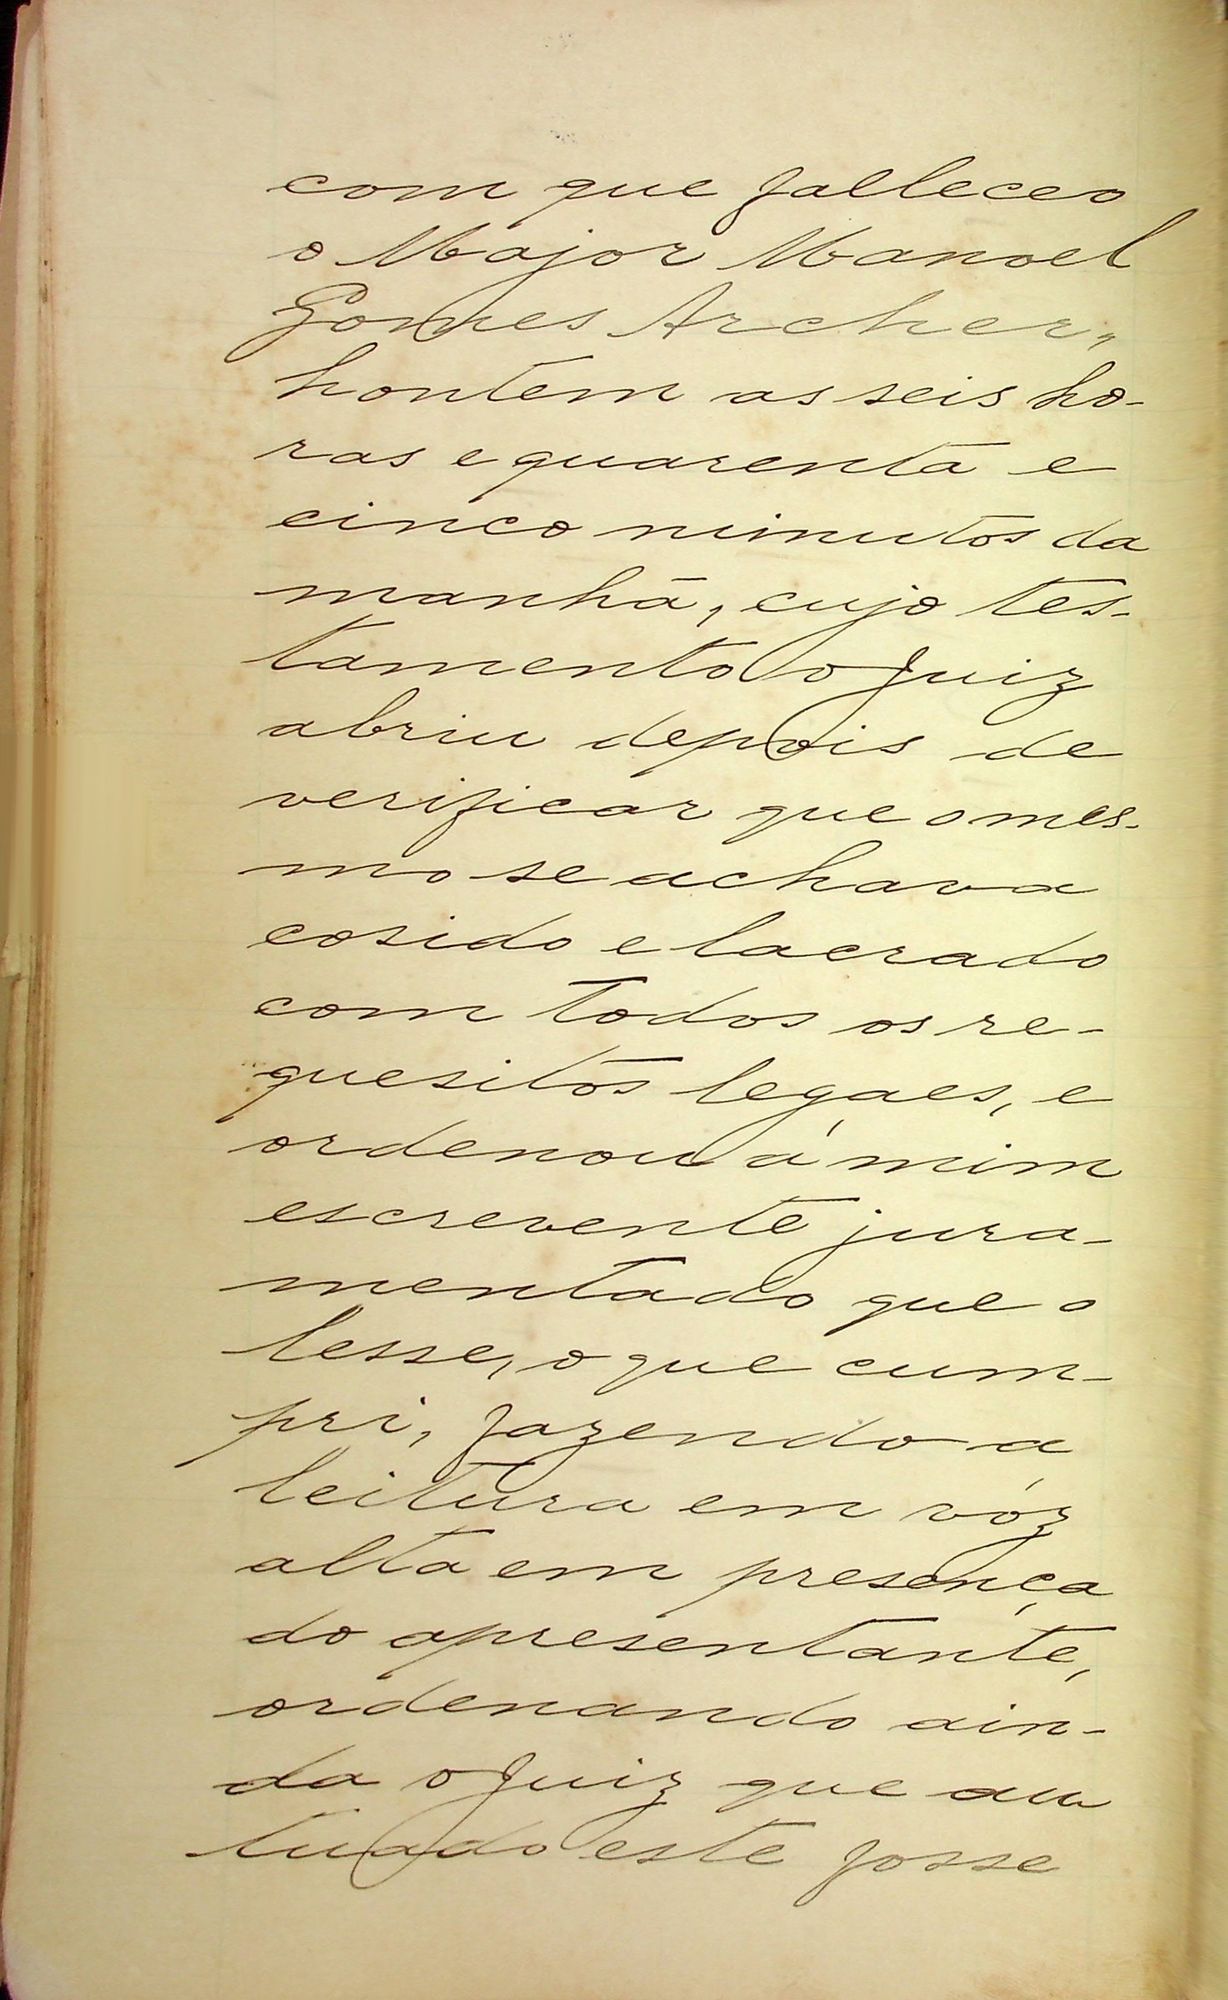 com que falleceo
o Major Manoel
Gomes Archer,
hontem as seis ho-
ras e quarenta e
cinco minutos da
manhã, cujo tes-
tamento o Juiz
abriu depois de
verificar que o mes-
mo se achava
cosido e lacrado
com todos os re-
quesitos legaes, e
ordenou á mim
escrevente jura-
mentado que o
lesse, o que cum-
pri, fazendo a
leitura em vóz
alta em presença
do apresentante,
ordenando ain-
da o Juiz que au
tuado este fosse